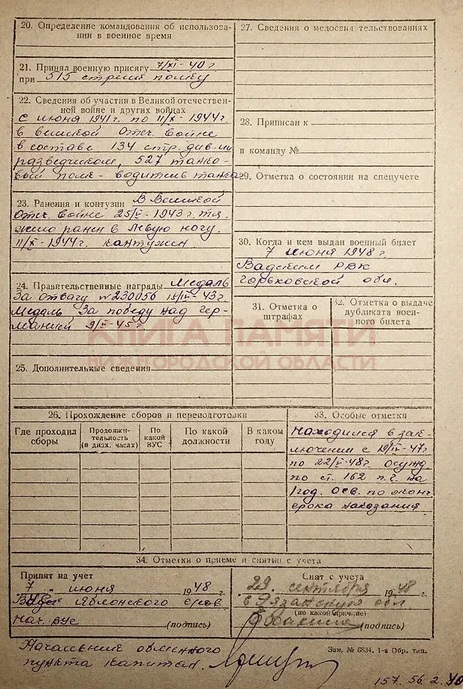 20. Определение командования об использова-
нии в военное время
21. Принял военную присягу 7/XI-40 г
при 515 стрелк полку
22. Сведения об участии в Великой отечествен-
ной войне и других войнах
с июня 1941 г. по 11/X-1944 г.
в великой Отеч. войне
в составе 134 стр. див-ии
разведчиком, 527 танко-
вый полк - водитель танка
23. Ранения и контузии В Великой
Отеч. войне 25/V-1943 г. тя-
жело ранен в левую ногу.
11/X-1944 г. контужен
24. Правительственные награды Медаль
За отвагу № 230056 43 г.
Медаль За победу над Гер-
манией 9/V-45 г.
25. Дополнительные сведения
27. Сведения о медосвидетельствованиях
28. Приписан к
в команду №
29. Отметка о состоянии на спецучете
30. Когда и кем выдан военный билет
7 июня 1948 г.
Вадский РВК
Горьковской обл.
31. Отметка о
штрафах
32. Отметка о выдаче
дубликата воен-
ного билета
КНИГА ПАМЯТИ
НИЖЕГОРОДСКОЙ ОБЛАСТИ
26. Прохождение сборов и переподготовки
Где проходил
сборы
Продолжи-
тельность
(в днях, часах)
По
какой
ВУС
По какой
должности
В каком
году
33. Особые отметки
Находился в зак-
лючении с 47 г
по 22/V-48 г. Осужд
по ст. 162 п. г. на
1 год. Осв. по оконч
срока наказания.
34. Отметки о приеме и снятии с учета
Принят на учет
7 июня 1948 г.
нач. вус (подпись)
Снят с учета
29 сентября 1948 г.
в обл
(по какой причине)
(подпись)
Начальник облвоенного
пункта капитан.
Зак. № 6834. 1-я Обр. тип.
157. 56 2.